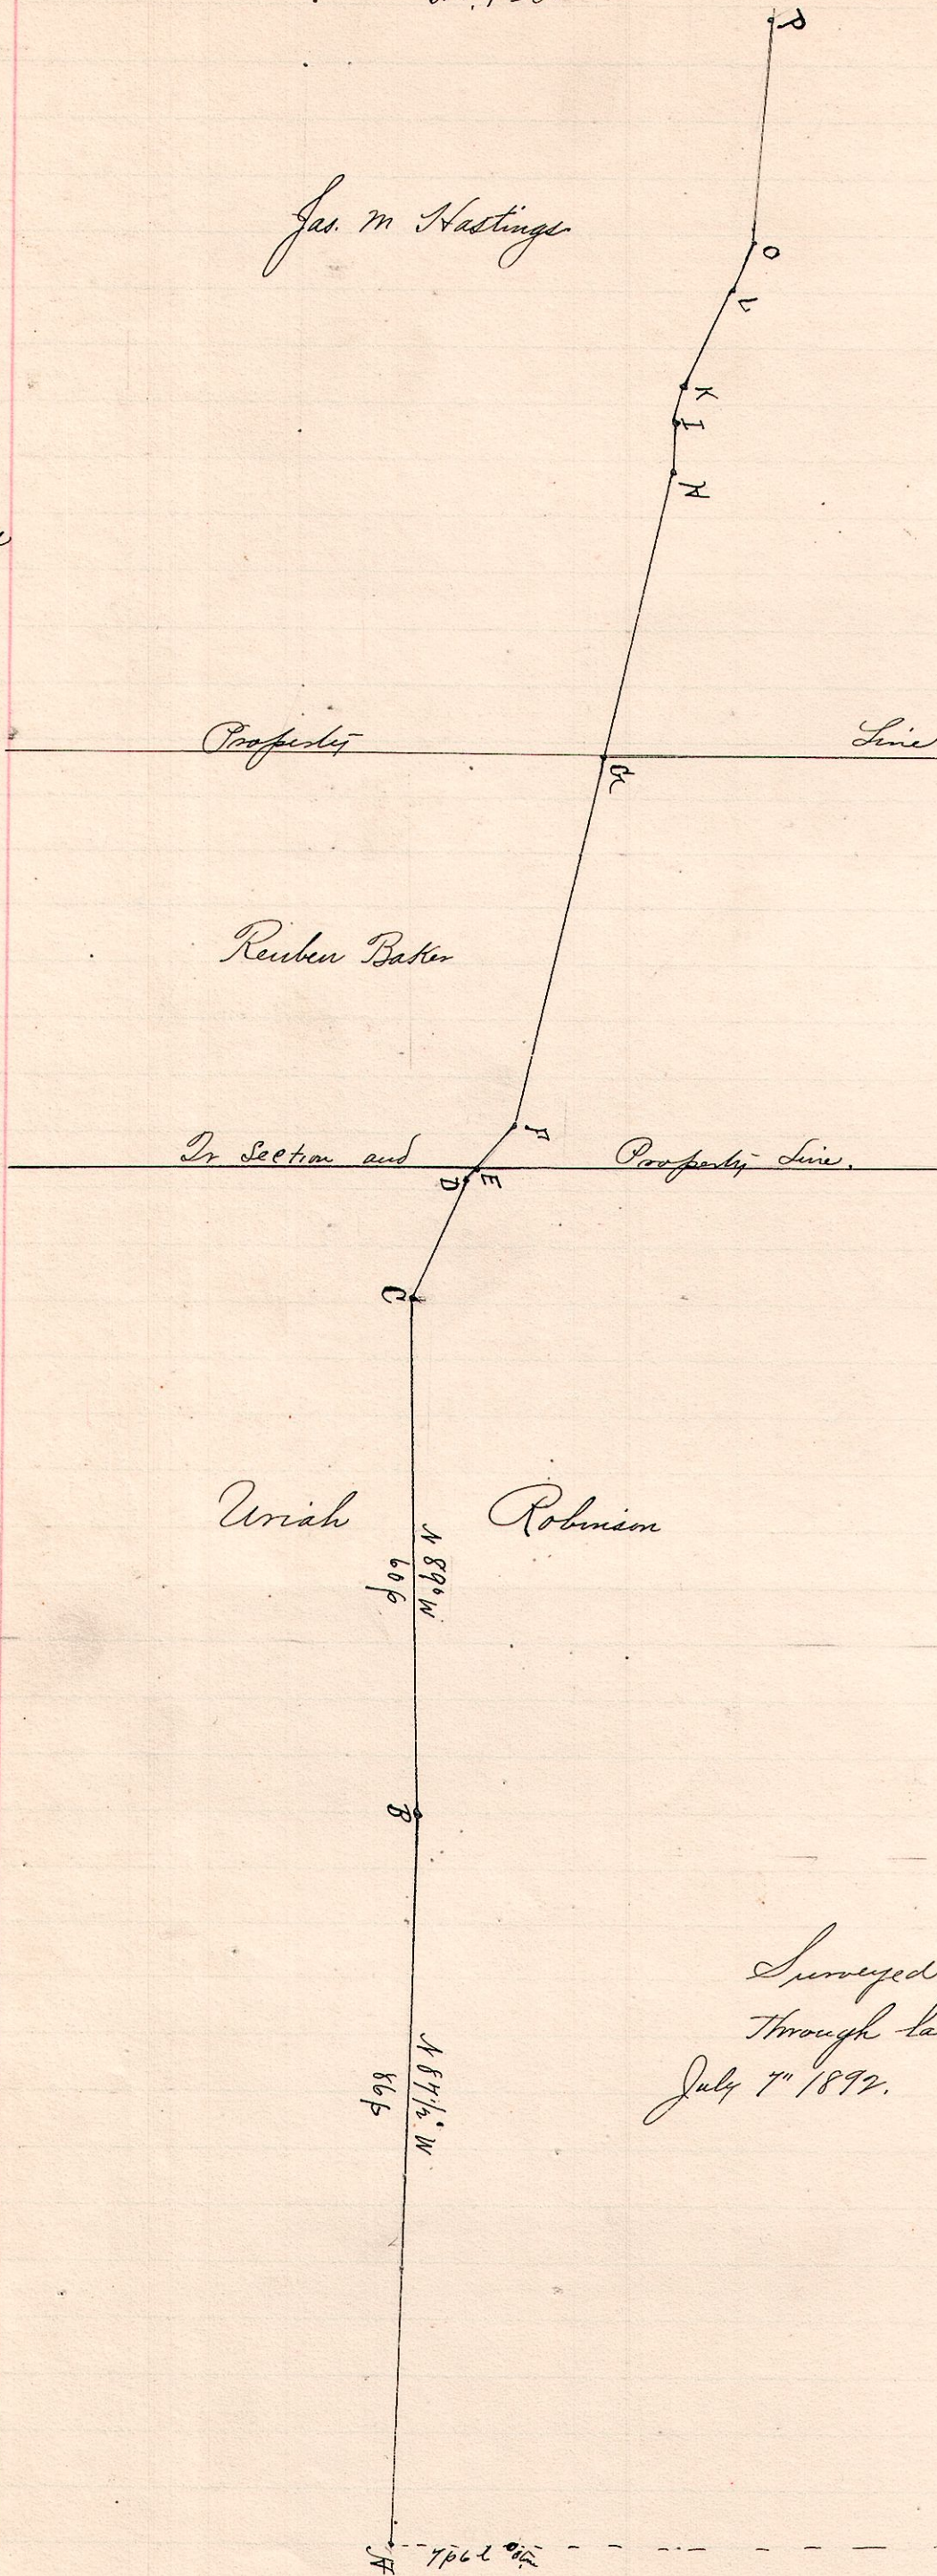 P
Jas. M Hastings
O
L
K
I
H
Property Line
G
Reuben Baker
F
Qr Section and Property Line.
D E
C
Uriah Robinson
N 89° W
60 p
B
Surveyed
Through la
July 7" 1892.
N 87½° W
86 p
A